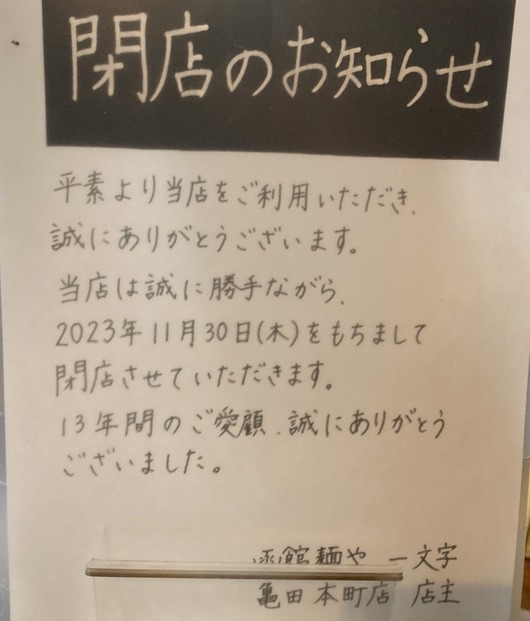 閉店のお知らせ
平素より当店をご利用いただき、
誠にありがとうございます。
当店は誠に勝手ながら、
2023年11月30日(木)をもちまして
閉店させていただきます。
13年間のご愛顧、誠にありがとう
ございました。
函館麺や 一文字
亀田本町店 店主